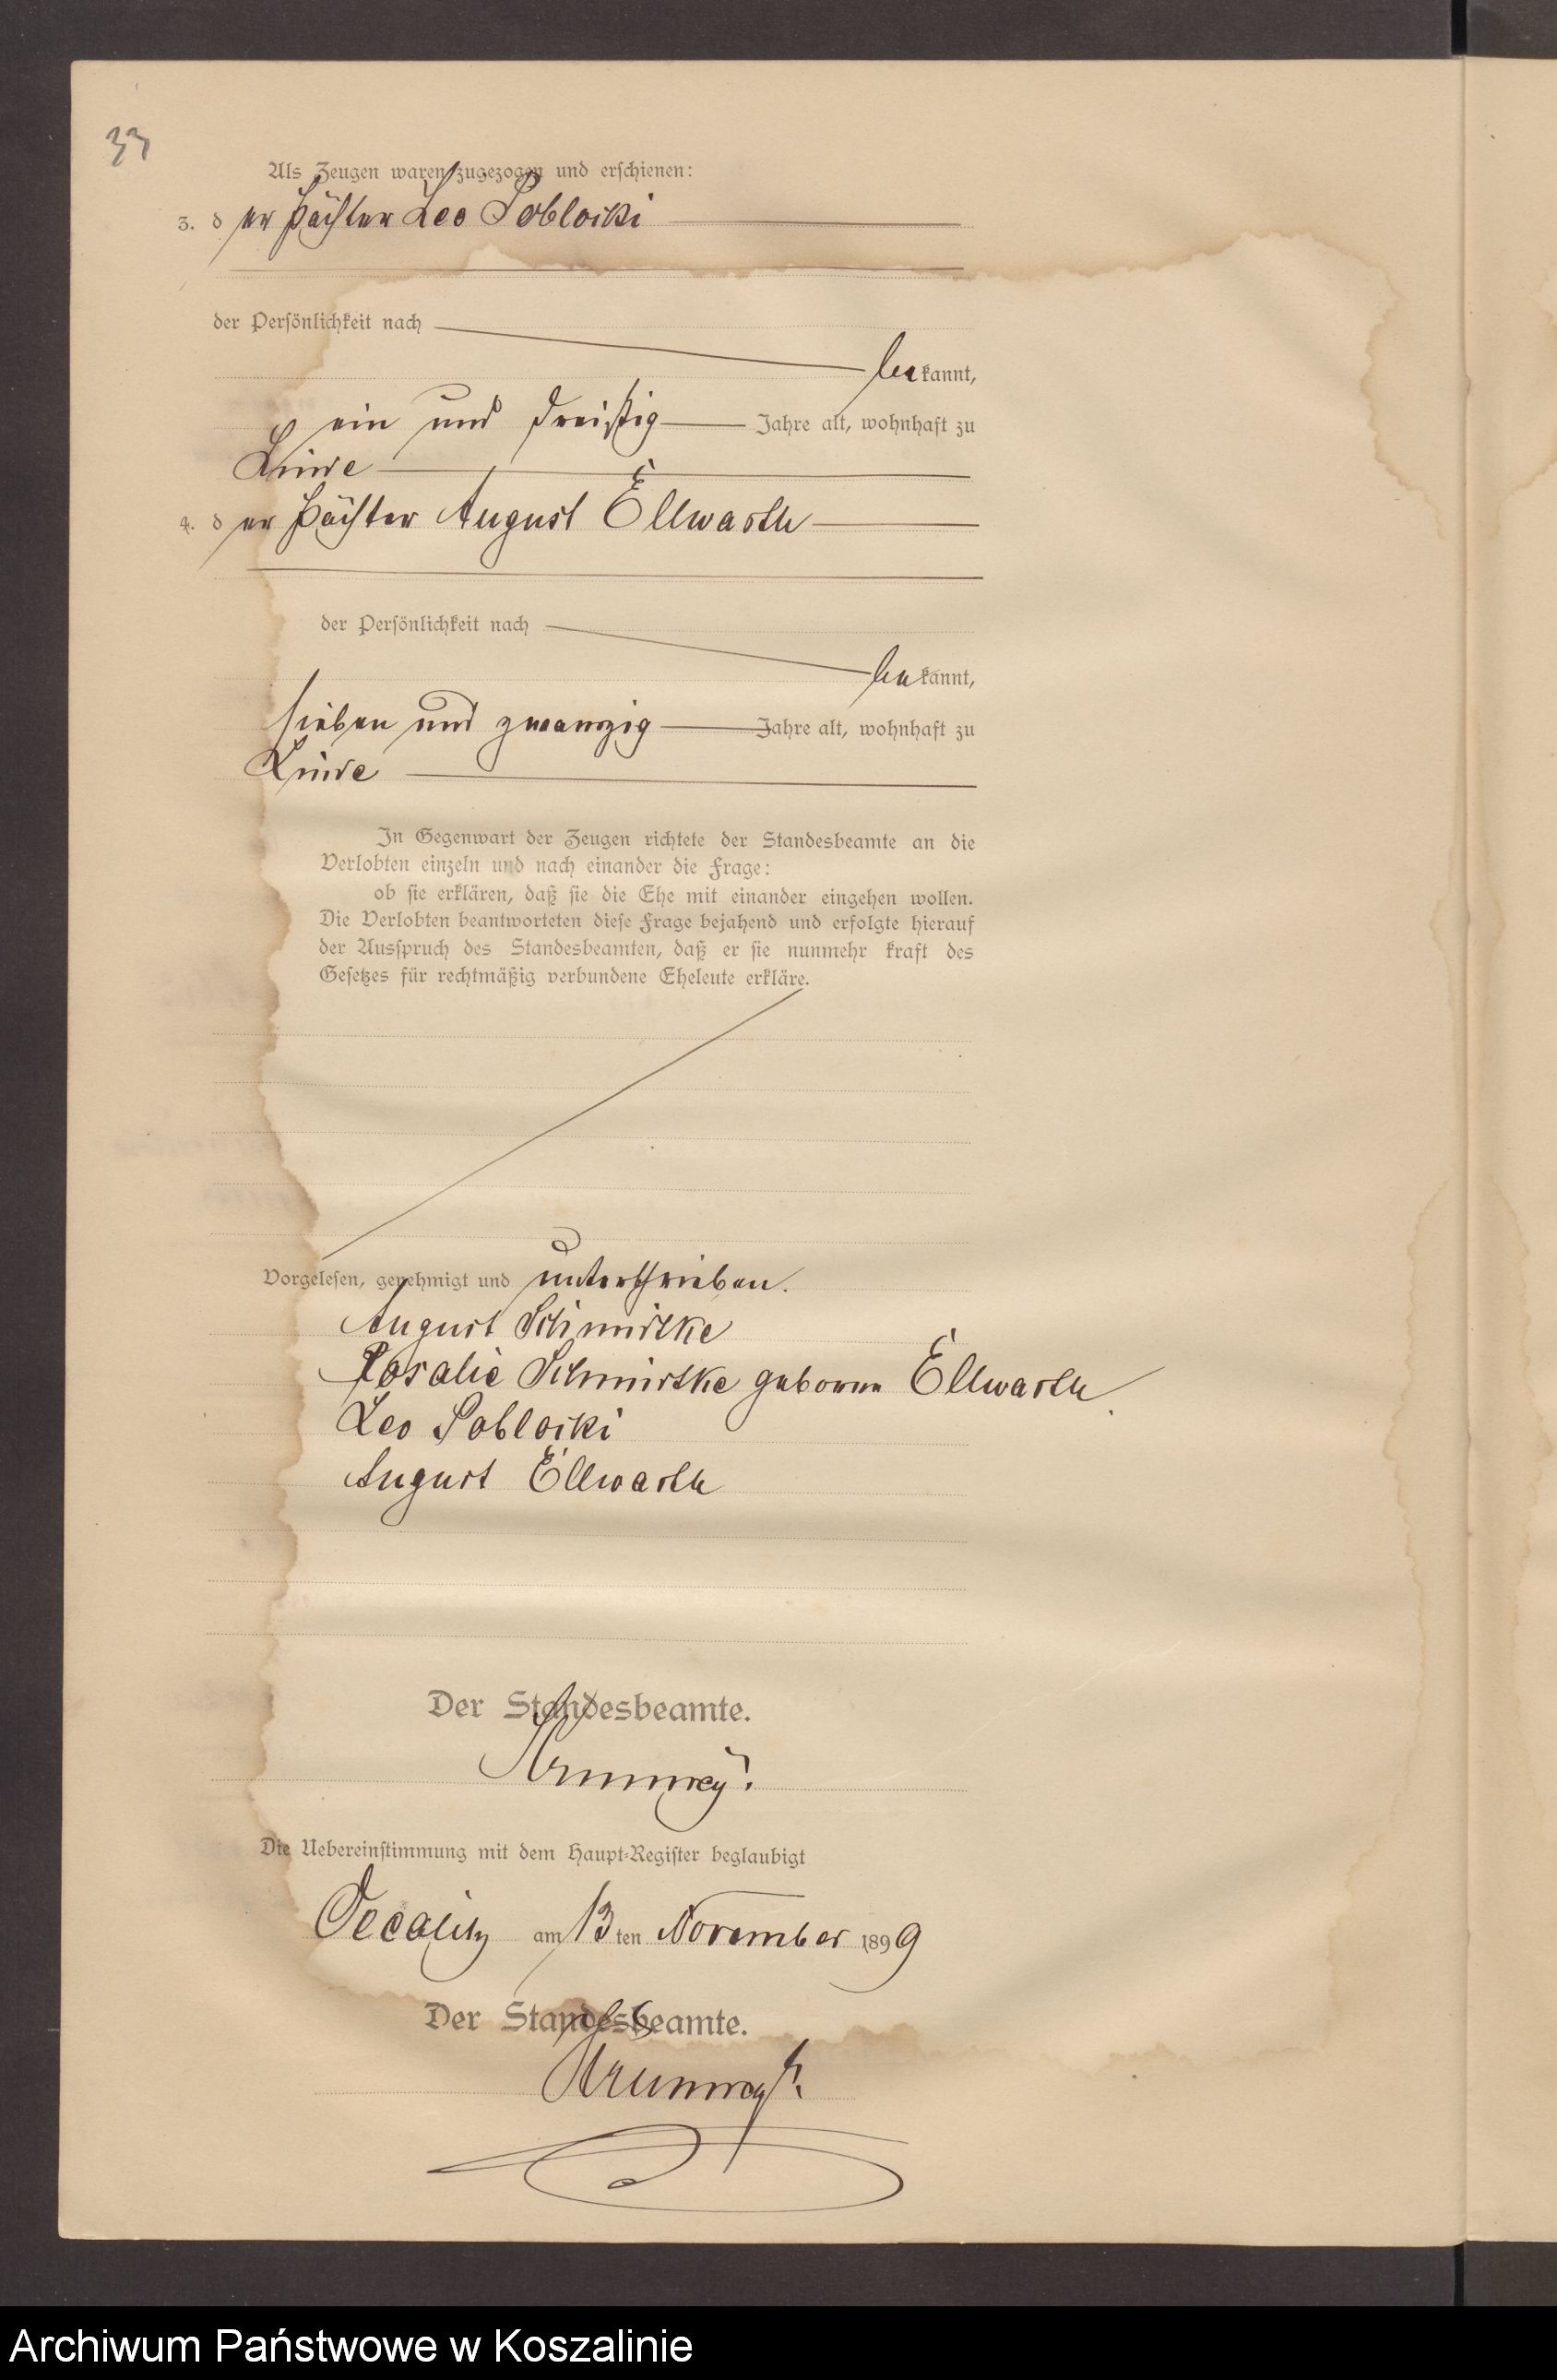 33
Als Zeugen waren zugezogen und erschienen:
3. der Pächter Leo Sobloiki
der Persönlichkeit nach
bekannt,
ein und dreißig Jahre alt, wohnhaft zu
4. der Pächter August Ellwardt
der Persönlichkeit nach
bekannt,
sieben und zwanzig Jahre alt, wohnhaft zu
In Gegenwart der Zeugen richtete der Standesbeamte an die
Verlobten einzeln und nach einander die Frage:
ob sie erklären, daß sie die Ehe mit einander eingehen wollen.
Die Verlobten beantworteten diese Frage bejahend und erfolgte hierauf
der Ausspruch des Standesbeamten, daß er sie nunmehr kraft des
Gesetzes für rechtmäßig verbundene Eheleute erkläre.
Vorgelesen, genehmigt und unterschrieben.
August Schmidtke
Rosalie Schmidtke geborene Ellwardt
Leo Sobloiki
August Ellwardt
Der Standesbeamte.
Die Uebereinstimmung mit dem Haupt-Register beglaubigt
am 13ten November 1899
Der Standesbeamte.
Archiwum Państwowe w Koszalinie